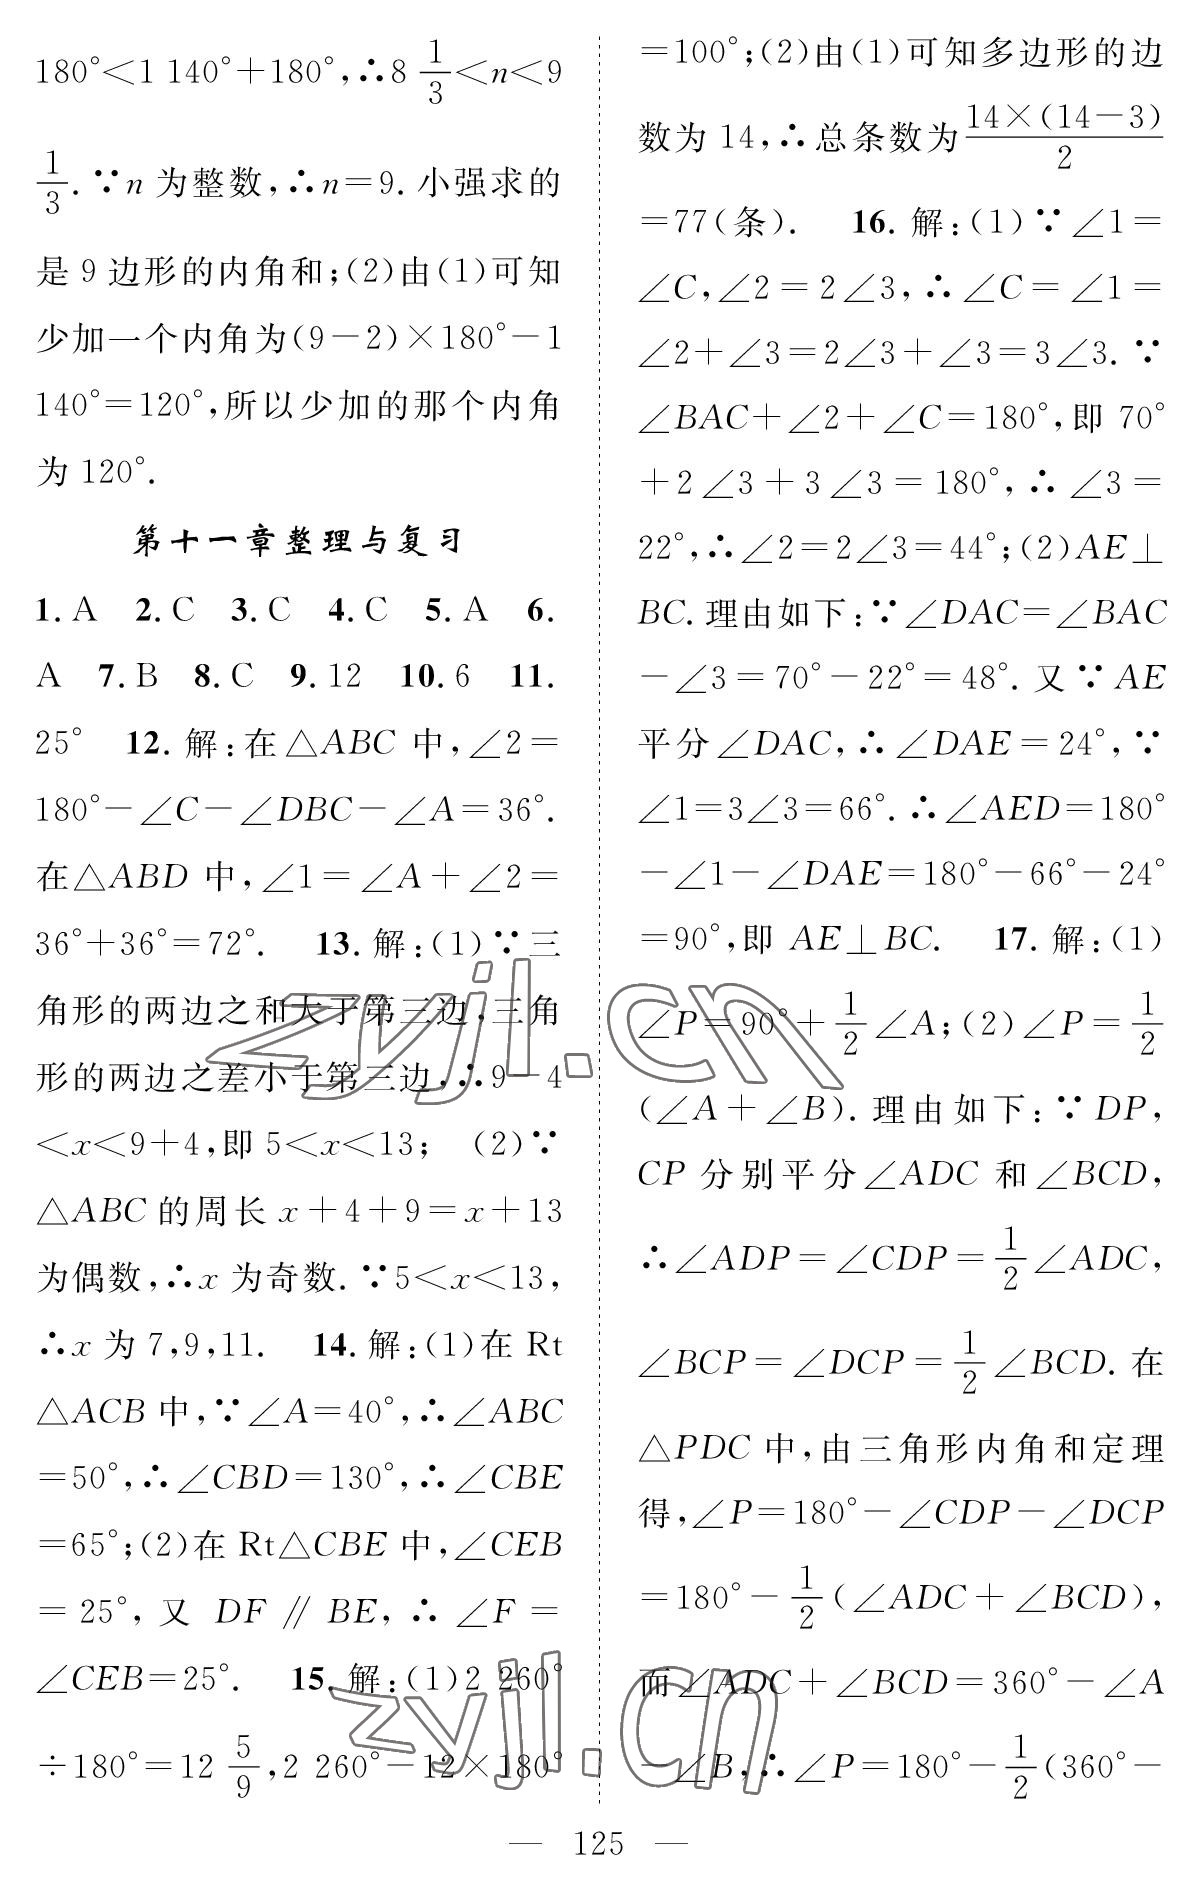 180°<1 140°+180°,∴8 1/3<n<9
1/3.∵n 为整数,∴n=9. 小强求的
是 9 边形的内角和;(2)由(1)可知
少加一个内角为(9-2)×180°-1
140°=120°,所以少加的那个内角
为 120°.
第十一章整理与复习
1. A 2. C 3. C 4. C 5. A 6.
A 7. B 8. C 9. 12 10. 6 11.
25° 12. 解:在△ABC 中,∠2=
180°-∠C-∠DBC-∠A=36°.
在△ABD 中,∠1=∠A+∠2=
36°+36°=72°. 13. 解:(1)∵三
角形的两边之和大于第三边,三角
形的两边之差小于第三边,∴9-4
<x<9+4,即 5<x<13; (2)∵
△ABC 的周长 x+4+9=x+13
为偶数,∴x 为奇数.∵5<x<13,
∴x 为 7,9,11. 14. 解:(1)在 Rt
△ACB 中,∵∠A=40°,∴∠ABC
=50°,∴∠CBD=130°,∴∠CBE
=65°;(2)在 Rt△CBE 中,∠CEB
=25°,又 DF∥BE,∴∠F=
∠CEB=25°. 15. 解:(1)2 260°
÷180°=12 5/9,2 260°-12×180°
=100°;(2)由(1)可知多边形的边
数为 14,∴总条数为14×(14-3)/2
=77(条). 16. 解:(1)∵∠1=
∠C,∠2=2∠3,∴∠C=∠1=
∠2+∠3=2∠3+∠3=3∠3.∵
∠BAC+∠2+∠C=180°,即 70°
+2∠3+3∠3=180°,∴∠3=
22°,∴∠2=2∠3=44°;(2)AE⊥
BC. 理由如下:∵∠DAC=∠BAC
-∠3=70°-22°=48°. 又∵AE
平分∠DAC,∴∠DAE=24°,∵
∠1=3∠3=66°.∴∠AED=180°
-∠1-∠DAE=180°-66°-24°
=90°,即 AE⊥BC. 17. 解:(1)
∠P=90°+1/2∠A;(2)∠P=1/2
(∠A+∠B). 理由如下:∵DP,
CP 分别平分∠ADC 和∠BCD,
∴∠ADP=∠CDP=1/2∠ADC,
∠BCP=∠DCP=1/2∠BCD. 在
△PDC 中,由三角形内角和定理
得,∠P=180°-∠CDP-∠DCP
=180°-1/2(∠ADC+∠BCD),
而∠ADC+∠BCD=360°-∠A
-∠B,∴∠P=180°-1/2(360°-
— 125 —
zyjl.cn
zyjl.cn